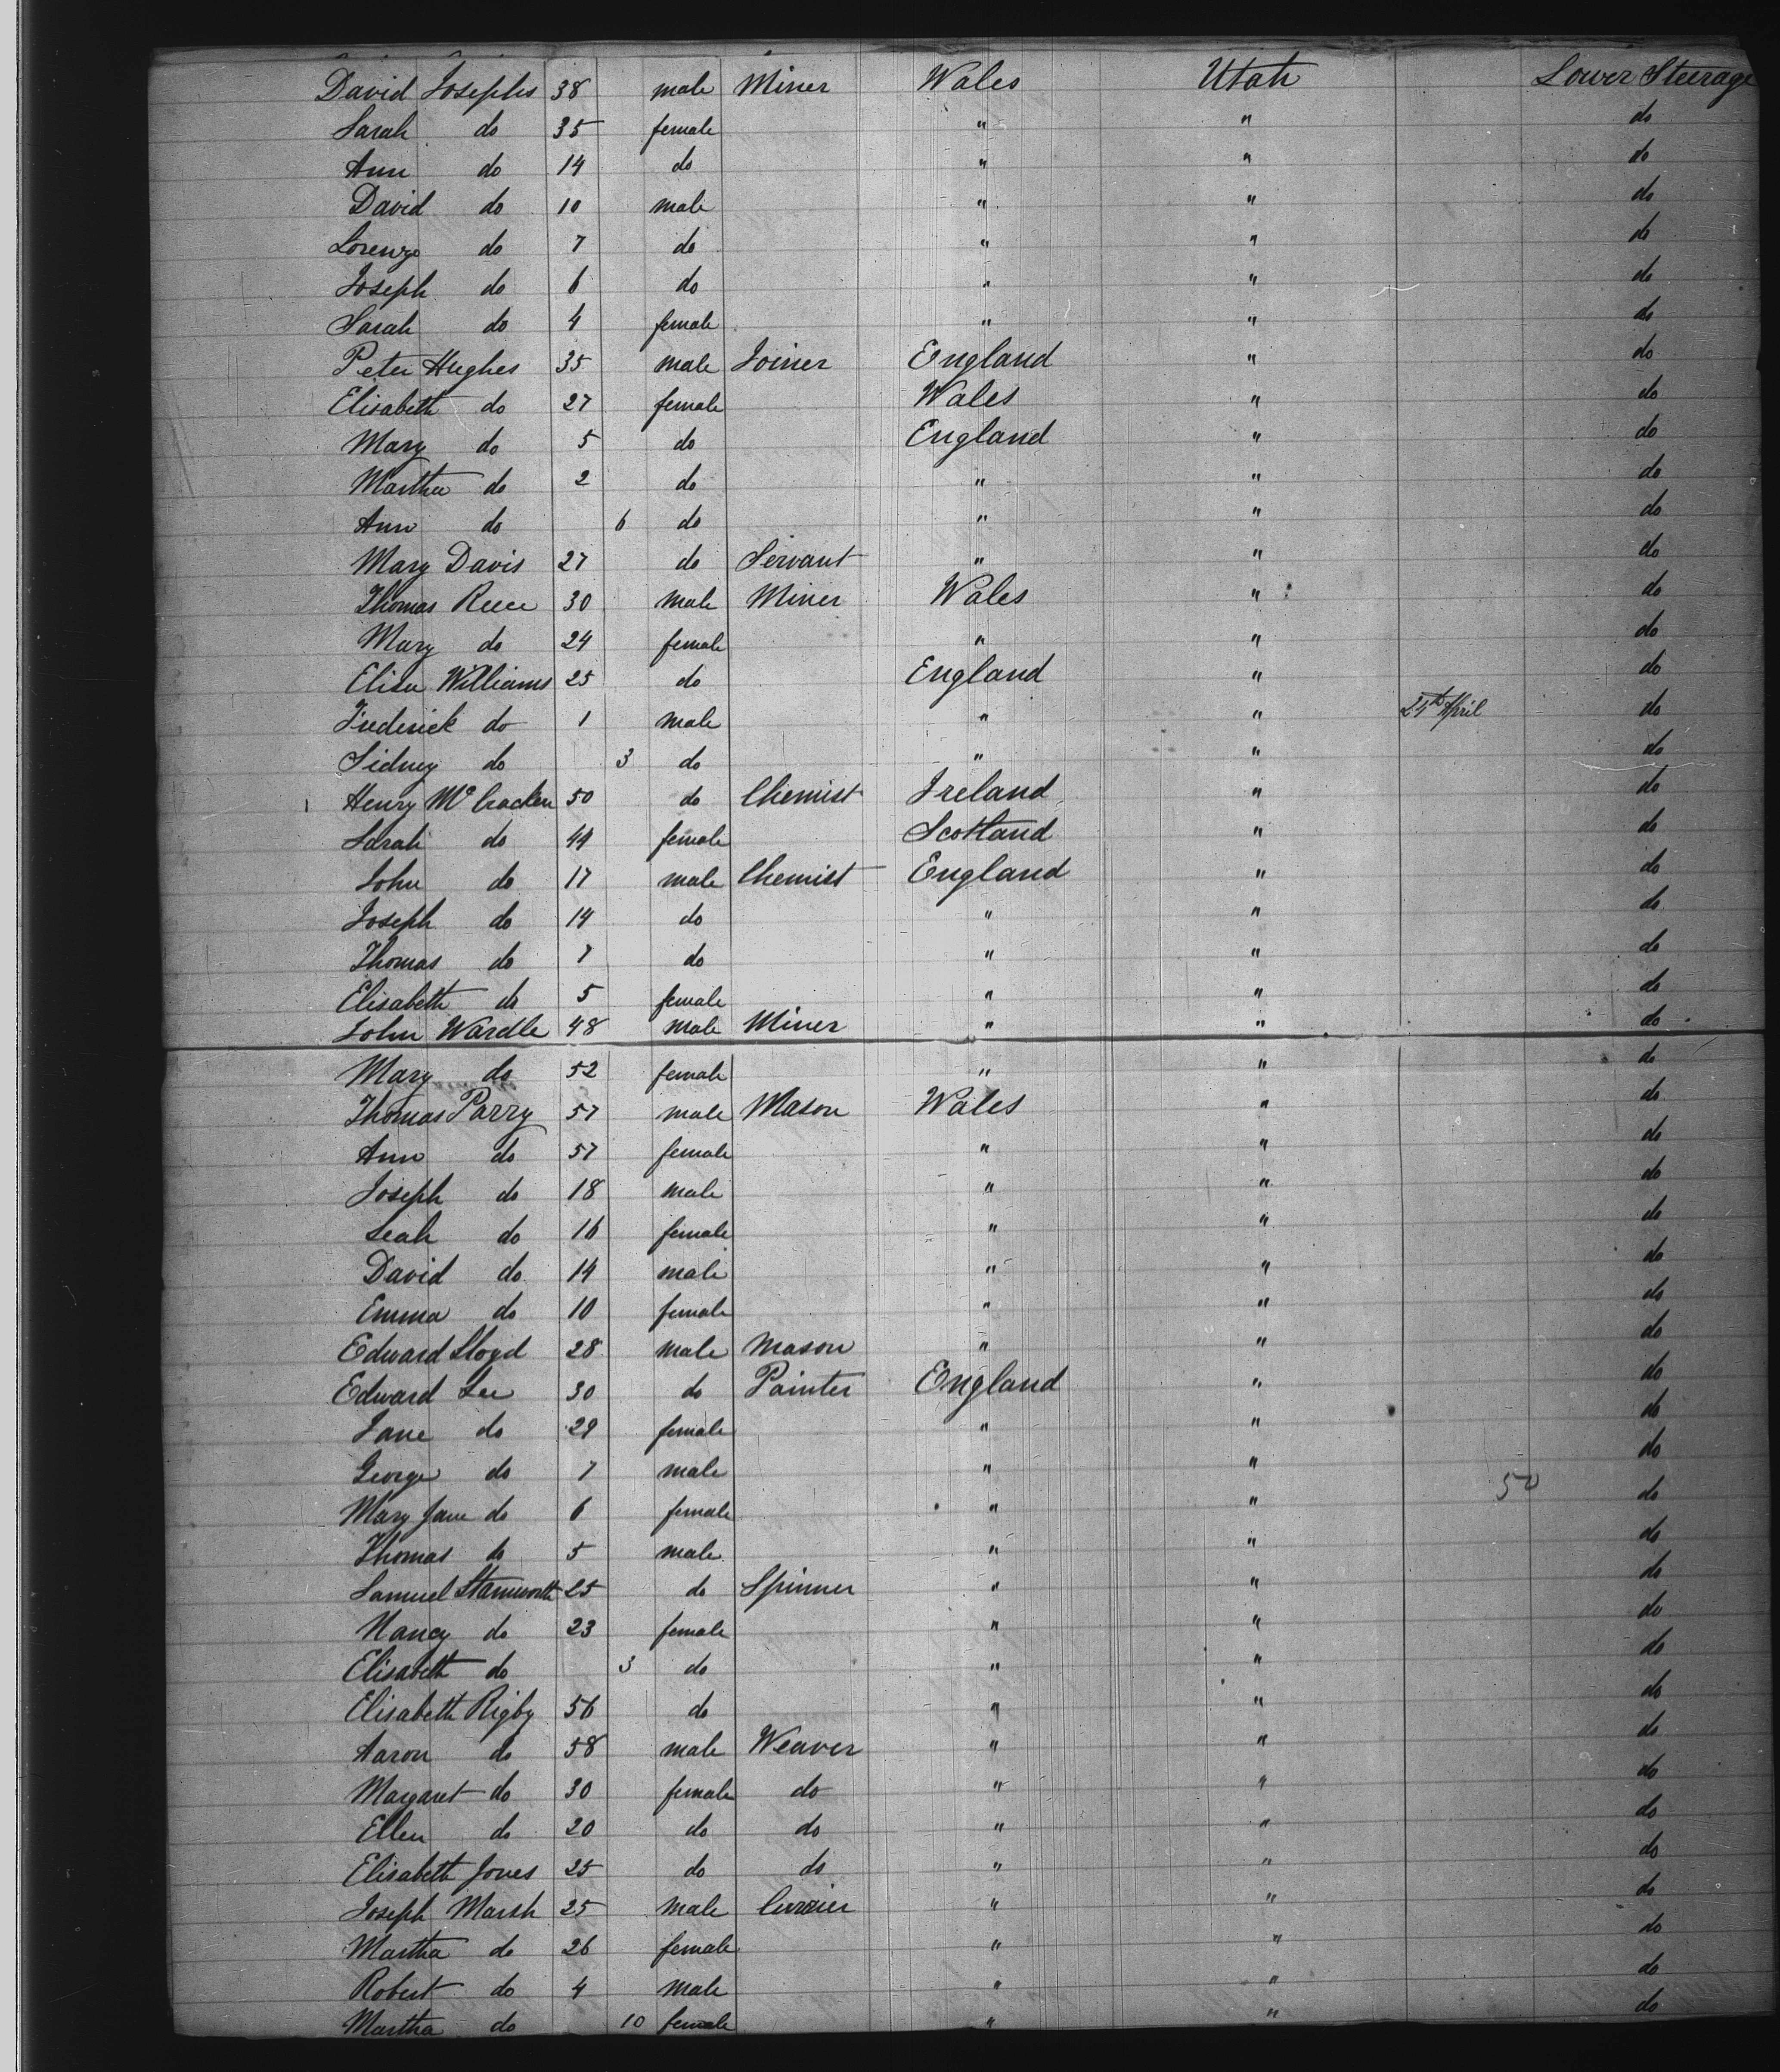 David Josephs 38 male Miner Wales Utah Lower Steerage
Sarah do 35 female " " do
Ann do 14 do " " do
David do 10 male " " do
Lorenzo do 7 do " " do
Joseph do 6 do " " do
Sarah do 4 female " " do
Peter Hughes 35 male Joiner England " do
Elisabeth do 27 female Wales " do
Mary do 5 do England " do
Martha do 2 do " " do
Ann do 6 do " " do
Mary Davis 27 do Servant " " do
Thomas Reece 30 male Miner Wales " do
Mary do 24 female " " do
Eliza Williams 25 do England " do
Frederick do 1 male " " 25th April do
Sidney do 3 do " " do
Henry McCracken 50 do Chemist Ireland " do
Sarah do 44 female Scotland " do
John do 17 male Chemist England " do
Joseph do 14 do " " do
Thomas do 7 do " " do
Elisabeth do 5 female " " do
John Wardle 48 male Miner " " do
Mary do 52 female " " do
Thomas Parry 57 male Mason Wales " do
Ann do 57 female " " do
Joseph do 18 male " " do
Leah do 16 female " " do
David do 14 male " " do
Emma do 10 female " " do
Edward Lloyd 28 male Mason " " do
Edward Lee 30 do Painter England " do
Jane do 29 female " " do
George do 7 male " " do
50
Mary Jane do 6 female " " do
Thomas do 5 male " " do
Samuel Stanworth 25 do Spinner " " do
Nancy do 23 female " " do
Elisabeth do 3 do " " do
Elisabeth Rigby 56 do " " do
Aaron do 58 male Weaver " " do
Margaret do 30 female do " " do
Ellen do 20 do do " " do
Elisabeth Jones 25 do do " " do
Joseph Marsh 25 male Currier " " do
Martha do 26 female " " do
Robert do 4 male " " do
Martha do 10 female " " do